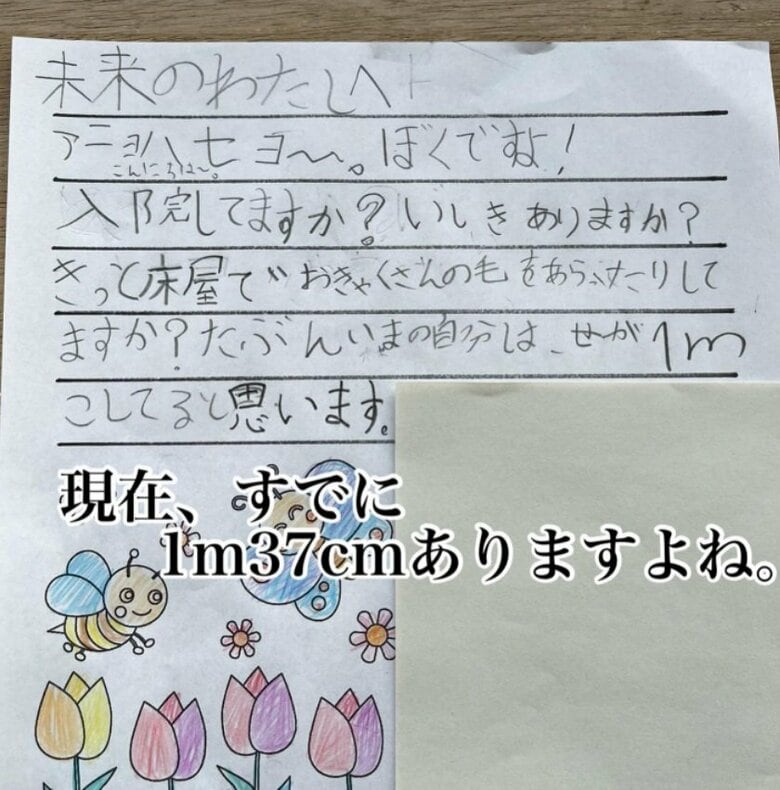 未来のわたしへ
アニョハセヨ〜。ぼくですよ!
こんにちは〜。
入院してますか?いしきありますか?
きっと床屋でおきゃくさんの毛をあらったりして
ますか?たぶんいまの自分は、せーが1m
こしてると思います。
現在、すでに
1m37cmありますよね。